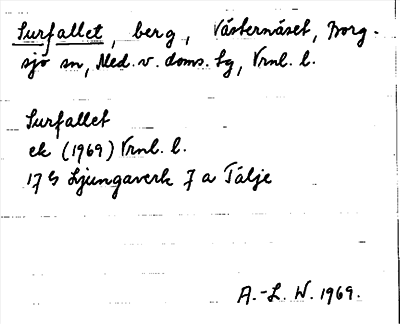 Surfallet, berg, Västernäset, Borg-
sjö sn, Med. v. doms. tg, Vrnl. l.
Surfallet
ek (1969) Vrnl. l.
17 G Ljungaverk 7 a Tälje
A.-L. W. 1969.